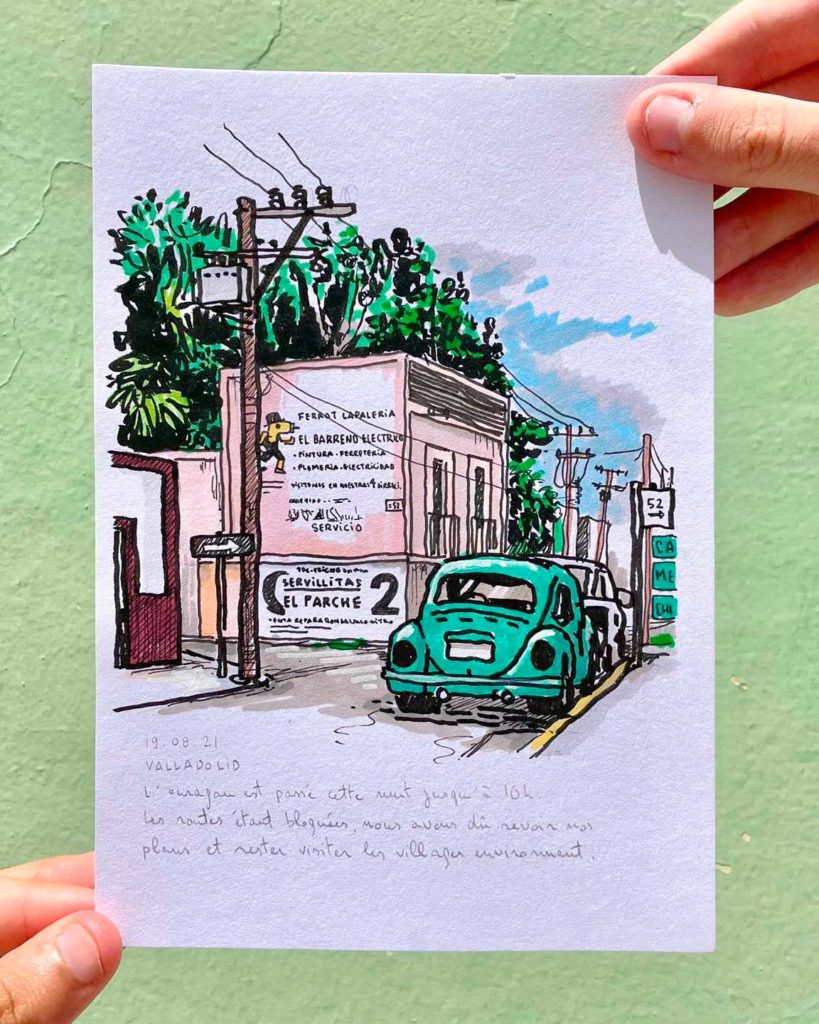 FERROT LAPALERIA
EL BARRENO ELECTRICO
• PINTURA • FERRETERIA
• PLOMERIA • ELECTRICIDAD
VISITENOS EN NUESTRAS 4 DIRREC.
SERVICIO
SERVILLITAS
EL PARCHE 2
52
CA
ME
CHI
19.08.21
VALLADOLID
L'ouragan est passé cette nuit jusqu'à 10h.
Les routes étant bloquées, nous avons dû revoir nos
plans et rester visiter les villages environnant.